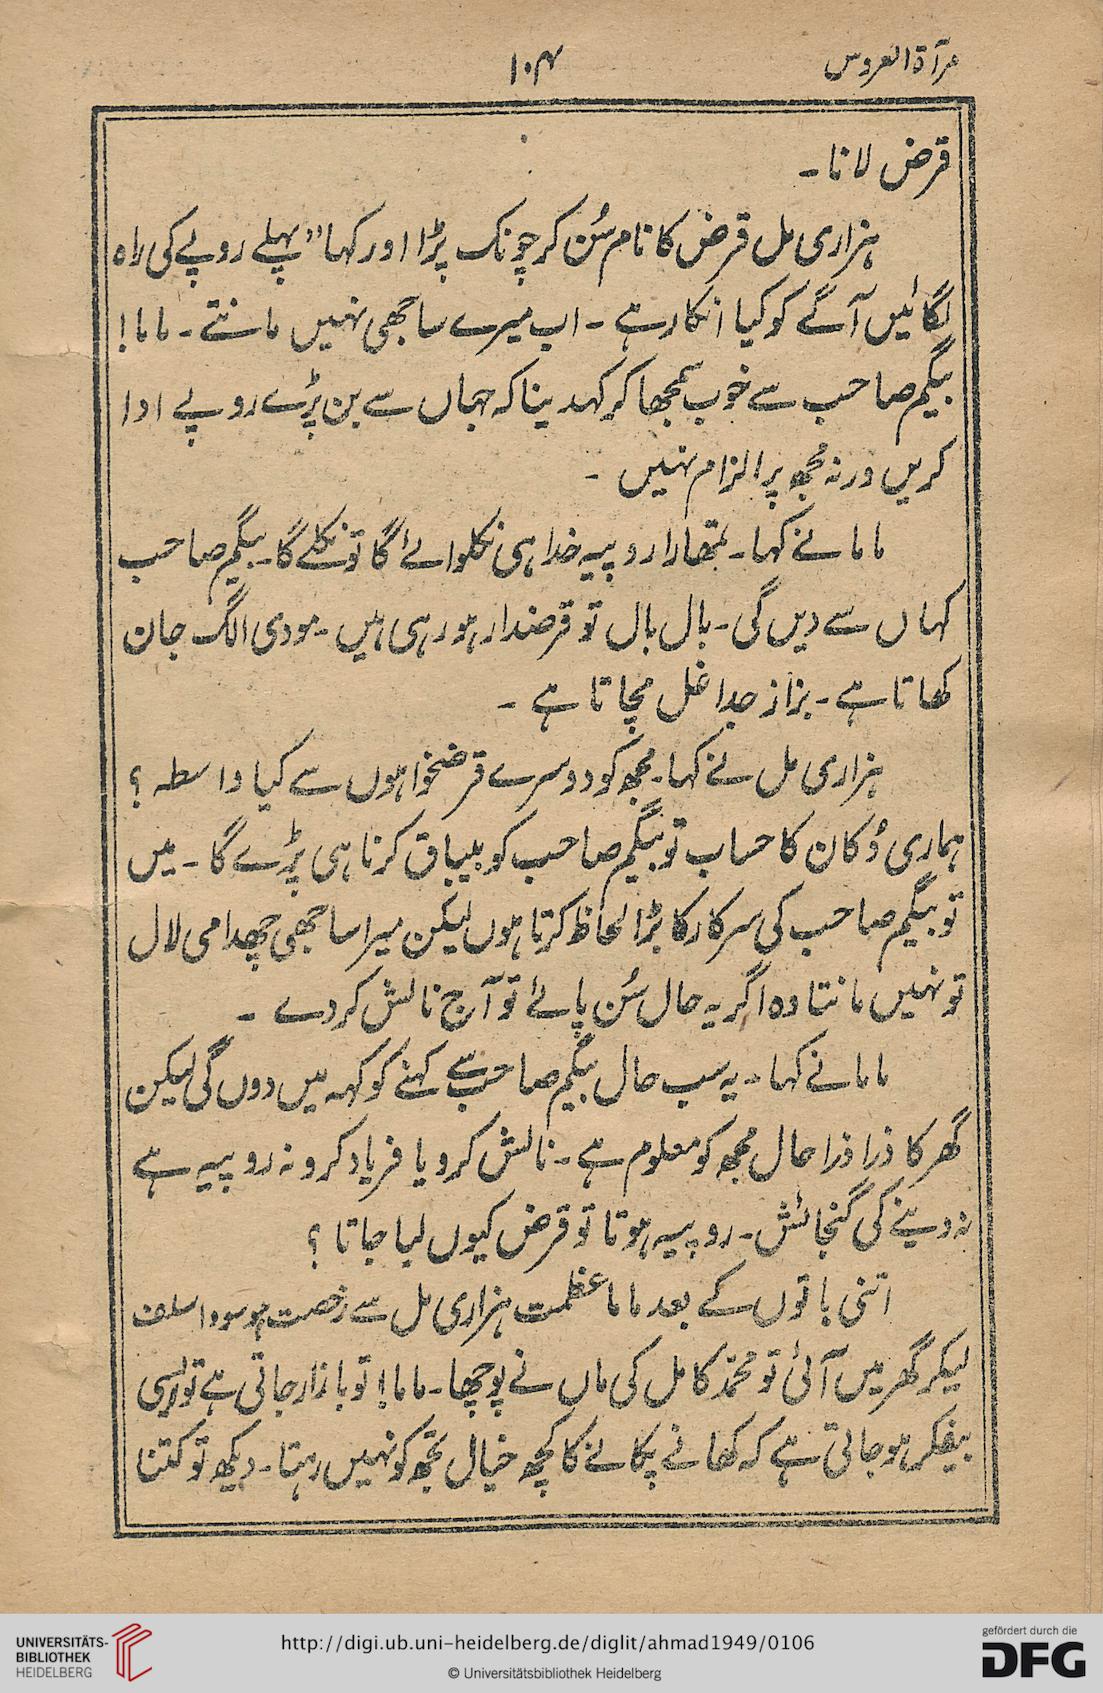 مرآۃ العروس
۱۰۴
قرض لانا۔
ہزاری مل قرض کا نام سُن کر چونک پڑا اور کہا” پہلے روپے کی راہ
لگائیں آگے کو کیا انکار ہے ۔ اب میرے ساجھی نہیں مانتے ۔ ماما!
بیگم صاحب سے خوب سمجھا کر کہدینا کہ جہاں سے بن پڑے روپے ادا
کریں ورنہ مجھ پر الزام نہیں ۔
ماما نے کہا۔ تمھارا روپیہ خدا ہی نکلوائے گا تو نکلے گا۔ بیگم صاحب
کہاں سے دیں گی۔ بال بال تو قرضدار ہو رہی ہیں ۔ مودی الگ جان
کھاتا ہے ۔ بزاز جدا غل مچاتا ہے ۔
ہزاری مل نے کہا۔ مجھ کو دوسرے قرضخواہوں سے کیا واسطہ ؟
ہماری دُکان کا حساب تو بیگم صاحب کو بیباق کرنا ہی پڑے گا ۔ میں
تو بیگم صاحب کی سرکار کا بڑا لحاظ کرتا ہوں لیکن میرا ساجھی چھدامی لال
تو نہیں مانتا وہ اگر یہ حال سُن پائے تو آج نالش کر دے ۔
ماما نے کہا ۔ یہ سب حال بیگم صاحب سے کہنے کو کہہ میں دوں گی لیکن
گھر کا ذرا ذرا حال مجھ کو معلوم ہے ۔ نالش کرو یا فریاد کرو نہ روپیہ ہے
نہ دینے کی گنجائش ۔ روپیہ ہوتا تو قرض کیوں لیا جاتا ؟
اتنی باتوں کے بعد ماما عظمت ہزاری مل سے رخصت ہو سودا سلف
لیکر گھر میں آئی تو محمّد کامل کی ماں نے پوچھا۔ ماما! تو بازار جاتی ہے تو ایسی
بیفکر ہو جاتی ہے کہ کھانے پکانے کا کچھ خیال تجھ کو نہیں رہتا ۔ دیکھ تو کتنا
UNIVERSITÄTS-
BIBLIOTHEK
HEIDELBERG
http://digi.ub.uni-heidelberg.de/diglit/ahmad1949/0106
© Universitätsbibliothek Heidelberg
gefördert durch die
DFG